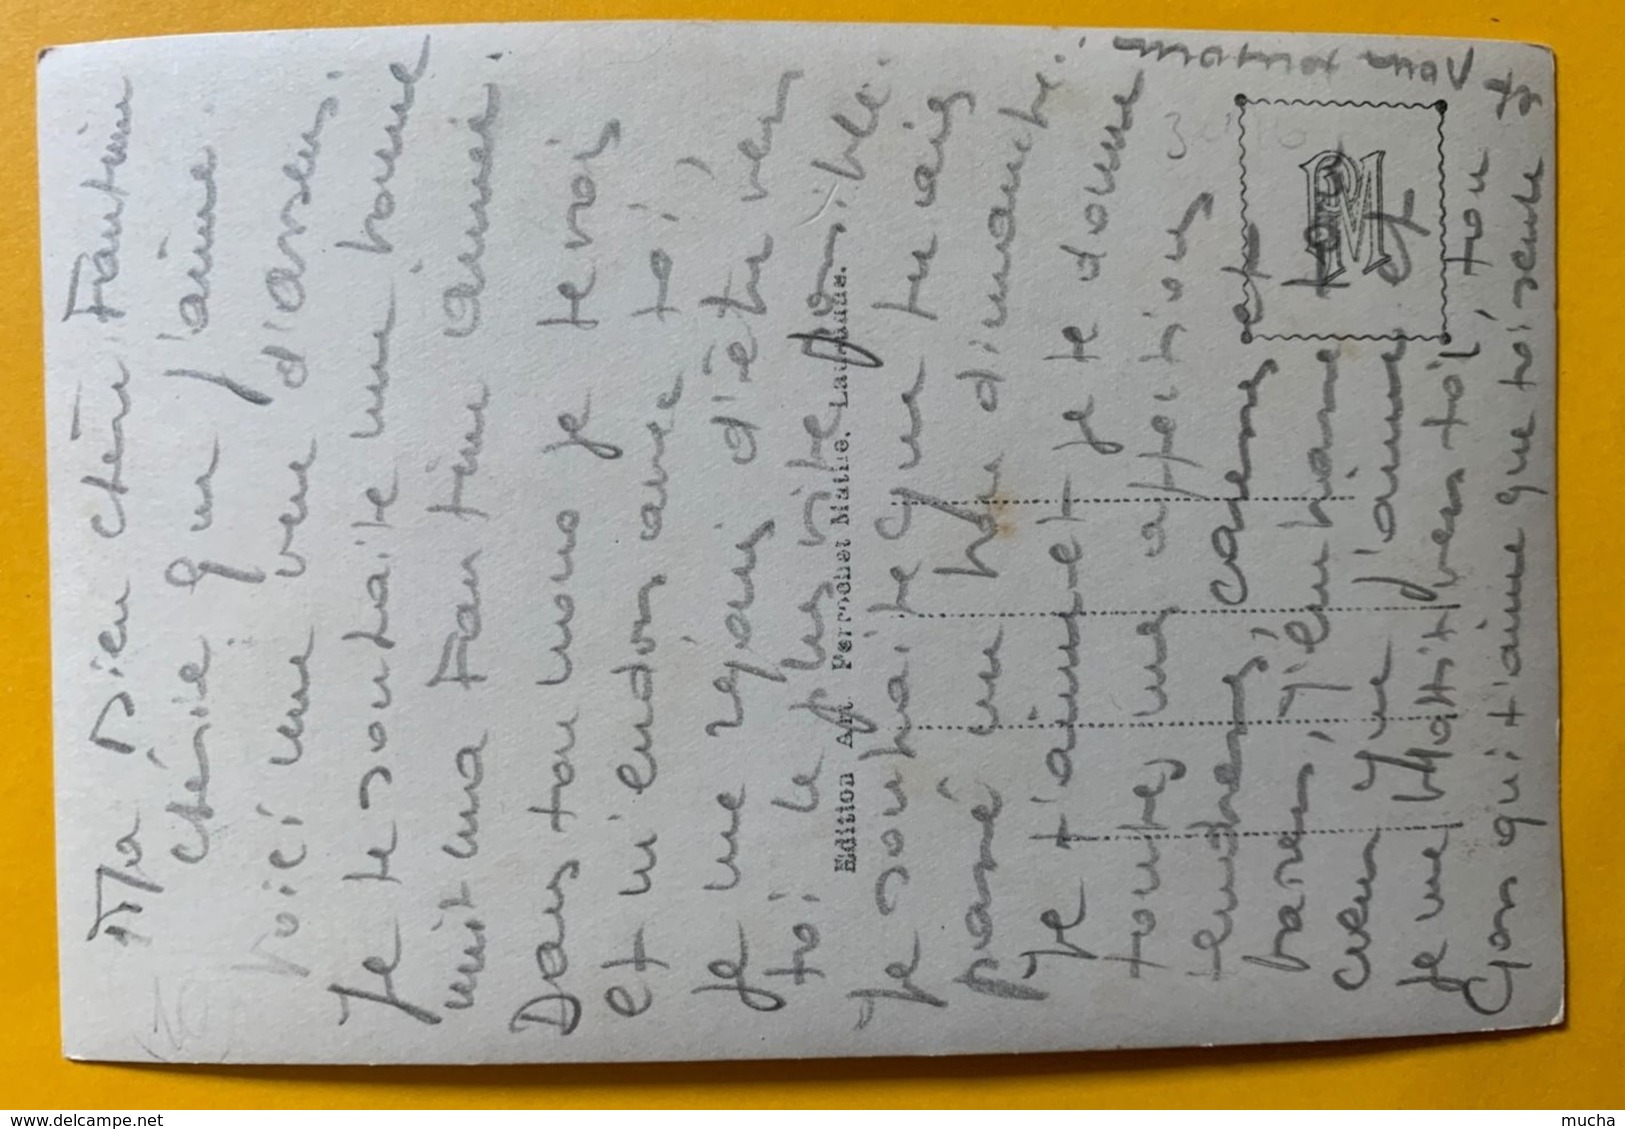 Ma bien chère Fantine
chérie que j'aime.
Voici une vue d'Assens.
Je te souhaite une bonne
nuit ma Fantine aimée.
Dans ton mono je te vois
et m'endors avec toi,
Je me réjouis d'être vers
toi le plus vite possible.
Je souhaite que tu aies
passé un bon dimanche.
Je t'aime et je te donne
toutes mes affections
tendres, caresses et
baisers, qu'enchasse ton
cœur que j'aime et
je me blottit vers toi, ton
Gas qui t'aime que toi seule et
pour toujours
Edition Art. Perrochet Matile, Lausanne.
PM
mucha